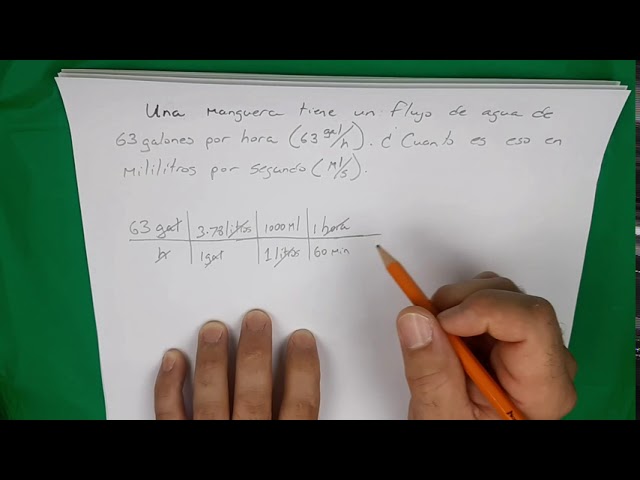 Una manguera tiene un flujo de agua de
63 galones por hora (63 gal/h). ¿Cuanto es eso en
Mililitros por segundo (Ml/s).
63 gal | 3.78 litros | 1000 Ml | 1 hora
h | 1 gal | 1 litros | 60 Min